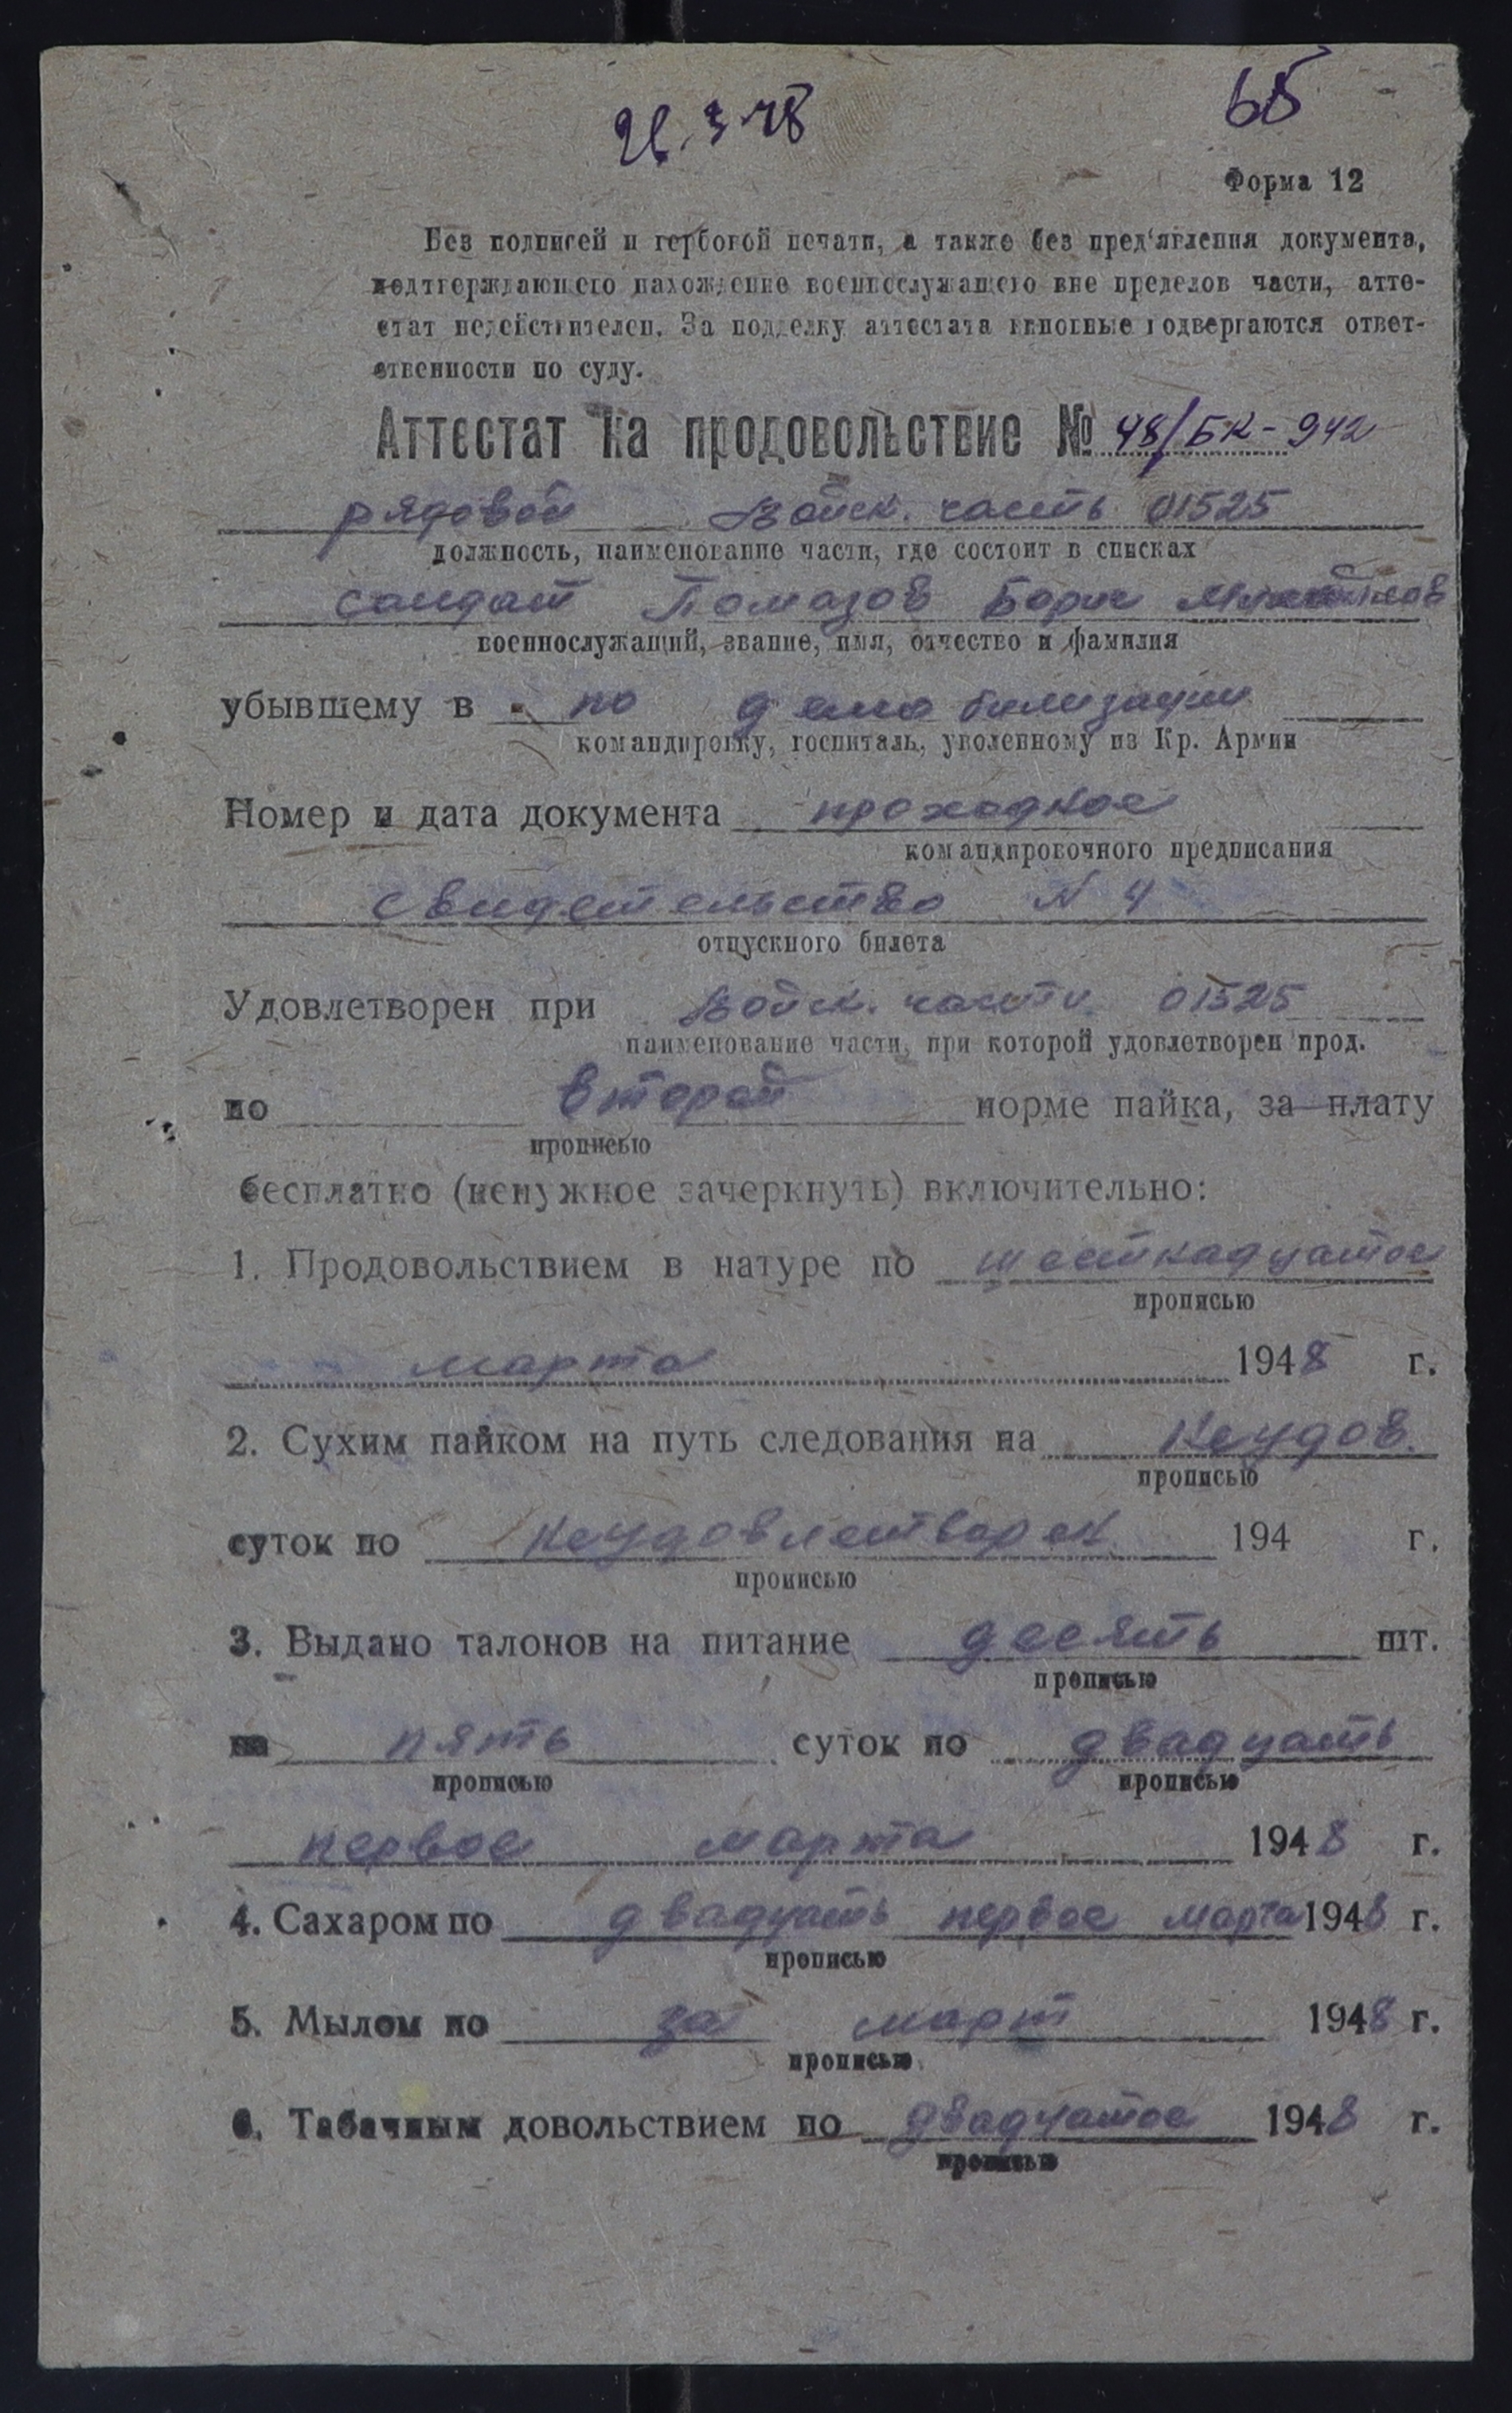 26.3.48
65
Форма 12
Без подписей и гербовой печати, а также без пред'явления документа,
подтверждающего нахождение военнослужащего вне пределов части, атте-
стат недействителен. За подделку аттестата виновные подвергаются ответ-
ственности по суду.
Аттестат на продовольствие № 48/БК-942
рядовой Войск. часть 01525
должность, наименование части, где состоит в списках
солдат Помазов Борис
военнослужащий, звание, имя, отчество и фамилия
убывшему в по демобилизации
командировку, госпиталь, уволенному из Кр. Армии
Номер и дата документа проходное
командировочного предписания
свидетельство N 4
отпускного билета
Удовлетворен при Войск. части 01525
наименование части, при которой удовлетворен прод.
по второй норме пайка, за плату
прописью
бесплатно (ненужное зачеркнуть) включительно:
1. Продовольствием в натуре по шестнадцатое
прописью
марта 1948 г.
2. Сухим пайком на путь следования на неудов.
прописью
суток по неудовлетворен 194 г.
прописью
3. Выдано талонов на питание десять шт.
прописью
на пять суток по двадцать
прописью прописью
первое марта 1948 г.
4. Сахаром по двадцать первое марта 1948 г.
прописью
5. Мылом по за март 1948 г.
прописью
6. Табачным довольствием по двадцатое 1948 г.
прописью